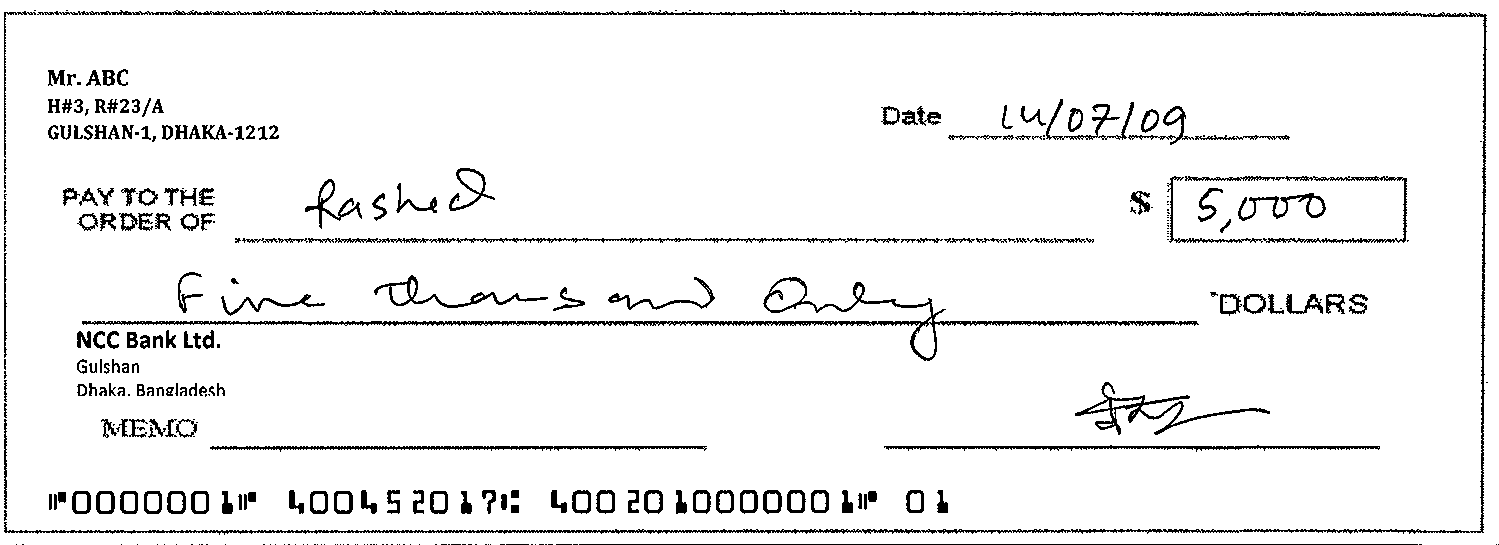 Mr. ABC
H#3, R#23/A
GULSHAN-1, DHAKA-1212
Date 14/07/09
PAY TO THE
ORDER OF Rashed $ 5,000
Five thousand Only DOLLARS
NCC Bank Ltd.
Gulshan
Dhaka. Bangladesh
MEMO
⑈0000001⑈ 400452017⑆ 400201000001⑈ 01